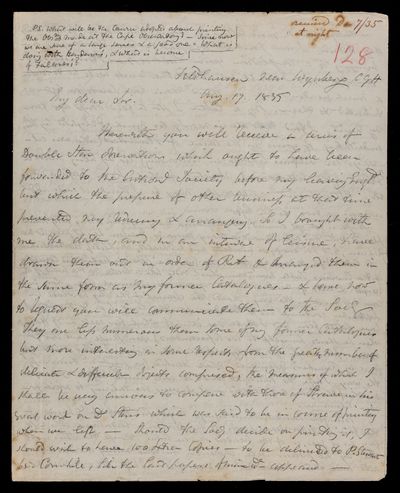 P.S. What will be the Course adopted about printing
the Obsns made at the Cape Observatory? - Since now
we are sure of a large Series & a good one - What is
doing with Henderson's, & what is become
of Fallows's?
received Dec 7/35
at night
128
Feldhausen near Wynberg C.G.H
Aug. 17. 1835
My dear Sir.
Herewith you will receive a series of
Double Star Observations which ought to have been
forwarded to the Astron Society before my leaving Engd
but which the pressure of other business at that time
prevented my reducing & arranging. So I brought with
me the data, and in an interval of leisure, have
drawn them out in order of RA & arranged them in
the same form as my former Catalogues - & have now
to request you will communicate them to the Socy
They are less numerous than some of my former Catalogues
but more interesting in some respects from the greater number of
delicate & difficult objects comprised, the measures of which I
shall be very anxious to compare with those of Struve in his
great work on Stars which was said to be in course of printing
when we left - Should the Socy decide on printing it, I
should wish to have 100 extra Copies - to be delivered to P. Stewart
in Cornhill, like the last papers of mine wh appeared -